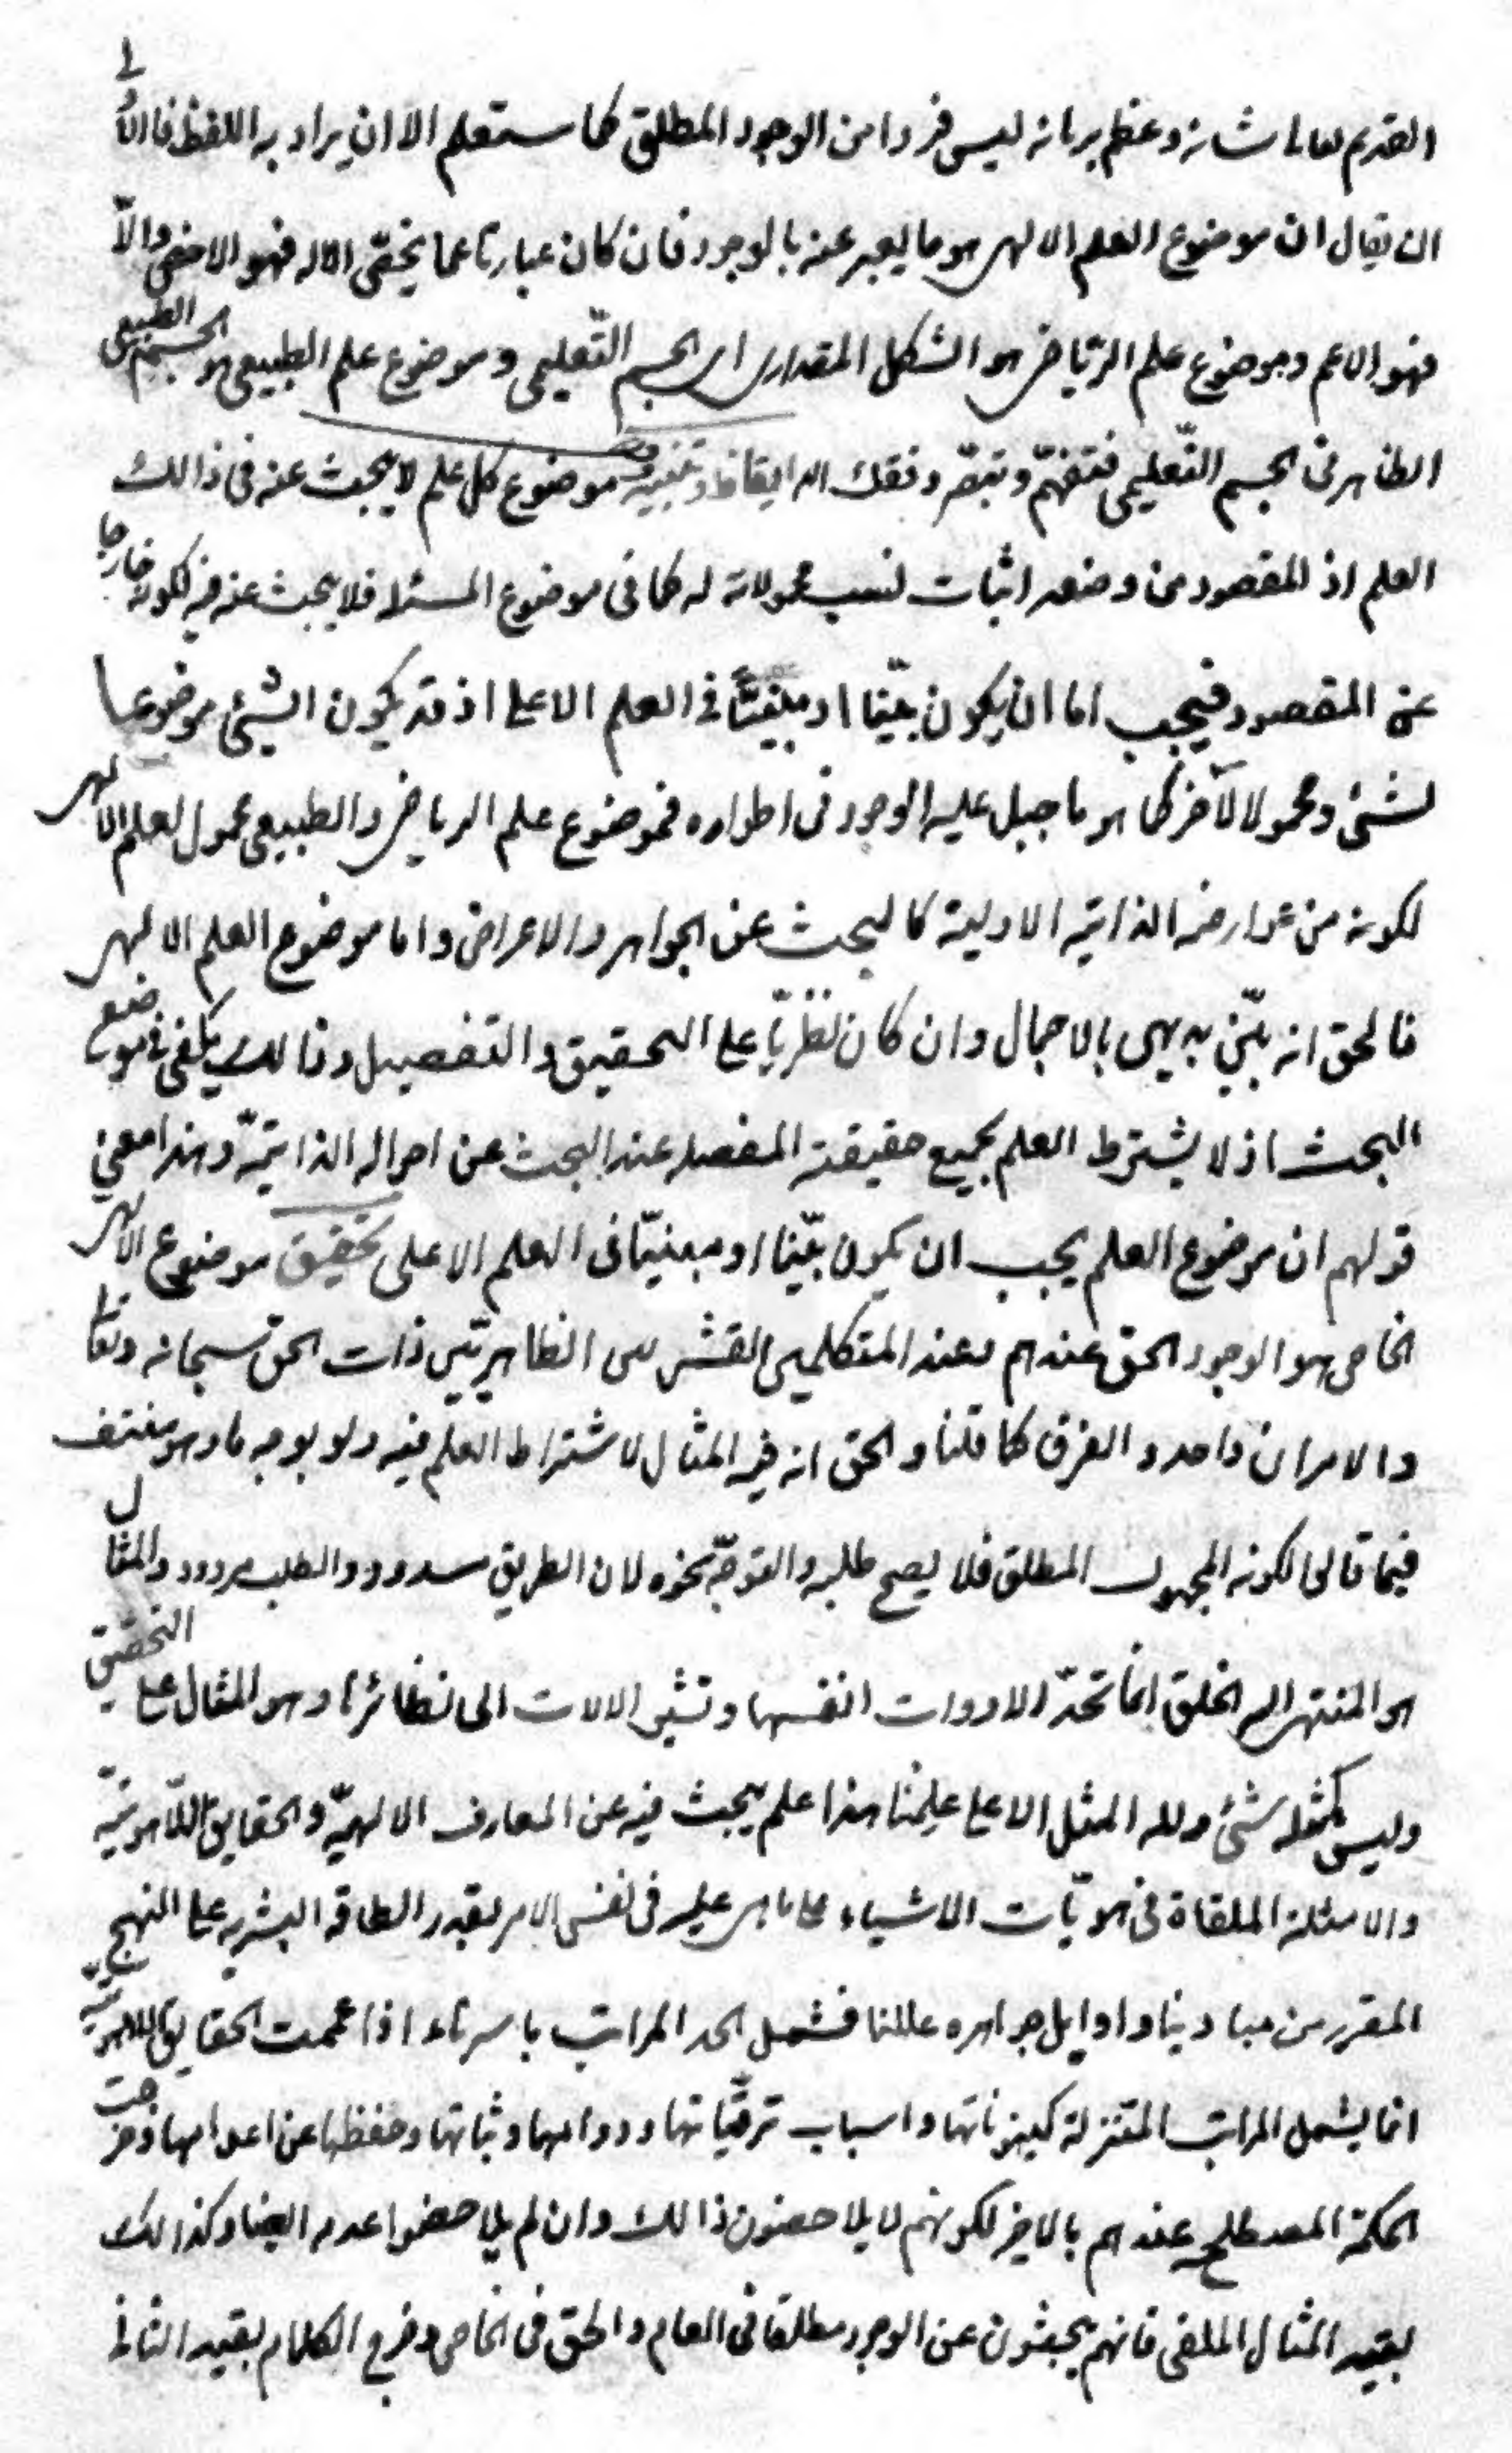 القديم تعالى شانه وعظم برهانه ليس فردا من الوجود المطلق كما ستعلم الا ان يراد به اللفظ فالاولى
ان يقال ان موضوع العلم الالهى هو ما يعبر عنه بالوجود فان كان عبارتا عما يختص الاله فهو الاخص والّا
فهو الاعم وموضوع علم الريّاضى هو الشكل المقدارى اى الجسم التّعليمى وموضوع علم الطبيعى هو الجسم الطبيعى
الظاهر فى الجسم التّعليمى فتفهّم وتبصّر وفقك الله ايقاظ وتنبيه موضوع كل علم لا يبحث عنه فى ذالك
العلم اذ المقصود من وضعه اثبات نسب محمولاته له كما فى موضوع المسئلة فلا يبحث عنه فيه لكونه خارجا
عن المقصود فيجب اما ان يكون بيّنا او مبيّنًا فى العلم الاعلى اذ قد يكون الشيئ موضوعا
لشئ ومحمولا لآخر كما هو ما جبل عليه الوجود فى اطواره فموضوع علم الرياضى والطبيعى محمول لعلم الالهى
لكونه من عوارضه الذاتيه الاولية كالبحث عن الجواهر والاعراض واما موضوع العلم الالهى
فالحق انه بيّن بديهى بالاجمال وان كان نظريّا على التحقيق والتفصيل وذالك يكفى فى موضع
البحث اذ لا يشترط العلم بجميع حقيقته المفصله عند البحث عن احواله الذاتيّة وهذا معنى
قولهم ان موضوع العلم يجب ان يكون بيّنا او مبيّنا فى العلم الاعلى تحقيق موضوع الالهى
الخاص هو الوجود الحق عندهم وعند المتكلمين القشريين الظاهريّين ذات الحق سبحانه وتعالى
والامران واحد والفرق كما قلنا والحق انه فيه المثال لاشتراط العلم فيه ولو بوجه ما وهو منتف
فيما قالوا لكونه المجهول المطلق فلا يصح طلبه والتوجّه نحوه لان الطريق مسدود والطلب مردود والمثال
هو المنتهى اليه الخلق انما تحدّ الادوات انفسها وتشير الالات الى نظائرها وهو المثال على التحقيق
وليس كمثله شئ ولله المثل الاعلى علمنا هذا علم يبحث فيه عن المعارف الالهيّة والحقايق اللّاهوتيّه
والامثلة الملقاة فى هويّات الاشياء على ما هى عليه فى نفس الامر بقدر الطاقه البشريه على النهج
المقرر من مبادينا واوايل جواهره عللنا فشمل الحد المراتب باسرها اذا عممت الحقايق اللاهوتيّه
انما يشمل المراتب المتنزلة كينوناتها واسباب ترقّياتها ودوامها وثباتها وحفظها عن اعدامها وخرجت
الحكمة المصطلحه عندهم بالاخر لكونهم لا يلاحضون ذالك وان لم يلاحضوا عدمه ايضا وكذالك
بقيد المثال الملقى فانهم يبحثون عن الوجود مطلقا فى العام والحق فى الخاص وخرج الكلام بقيد الثانى